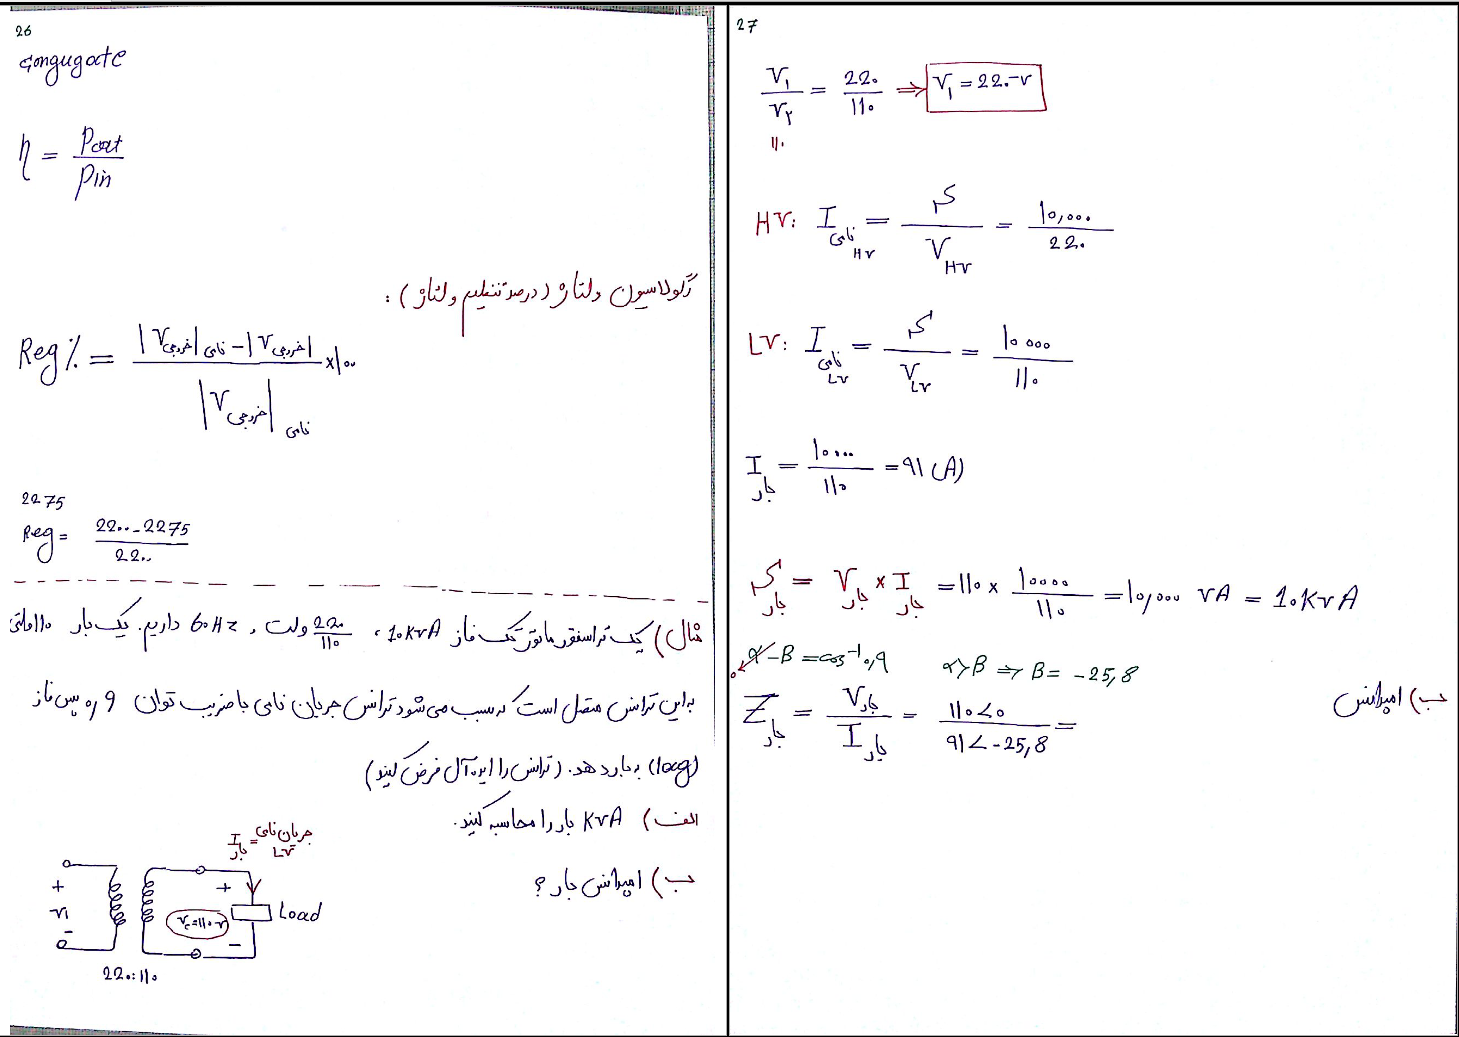 26
congugate
η = Pout / Pin
رگولاسیون ولتاژ (درصد تنظیم ولتاژ) :
Reg% = |V خروجی| نامی - |V خروجی| / |V خروجی| نامی × ۱۰۰
2275
Reg = 2200-2275 / 2200
مثال) یک ترانسفورماتور تک فاز 10KVA ، 220/110 ولت و 60Hz داریم. یک بار ۱۱۰ ولتی
به این ترانس متصل است که سبب می‌شود ترانس جریان نامی با ضریب توان ۰٫۹ پس فاز
(lag) به بار دهد. (ترانس را ایده‌آل فرض کنید)
الف) KVA بار را محاسبه کنید.
ب) امپدانس بار ؟
I بار = جریان نامی LV
+ V1 -
+ V2=110 V -
Load
220:110
27
V1 / V2 = 220 / 110 ⇒ V1 = 220 V
110
HV: I نامی HV = S / V HV = 10,000 / 220
LV: I نامی LV = S / V LV = 10000 / 110
I بار = 10000 / 110 = 91 (A)
S بار = V بار × I بار = 110 × 10000 / 110 = 10,000 VA = 10KVA
α-B = cos⁻¹ 0,9 α>B ⇒ B = -25,8
0
ب) امپدانس
Z بار = V بار / I بار = 110∠0 / 91∠-25,8 =